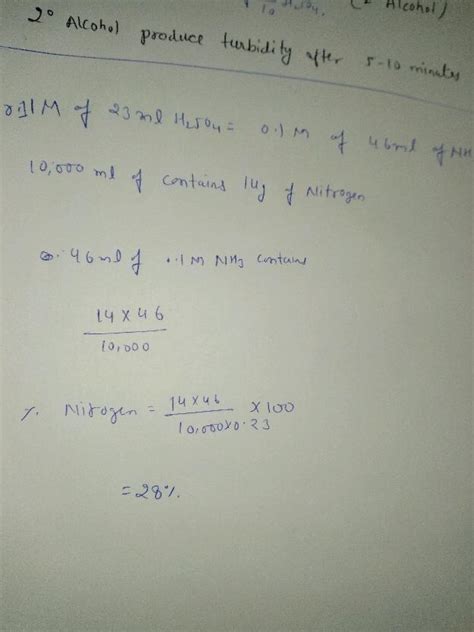 10 H2SO4. (2° Alcohol)
2° Alcohol produce turbidity after 5-10 minutes
0.1M of 23ml H2SO4 = 0.1M of 46ml of NH
10,000 ml of contains 14g of Nitrogen
46ml of .1M NH3 contains
14 × 46
10,000
% Nitrogen = 14×46 × 100
10,000×0.23
= 28%.